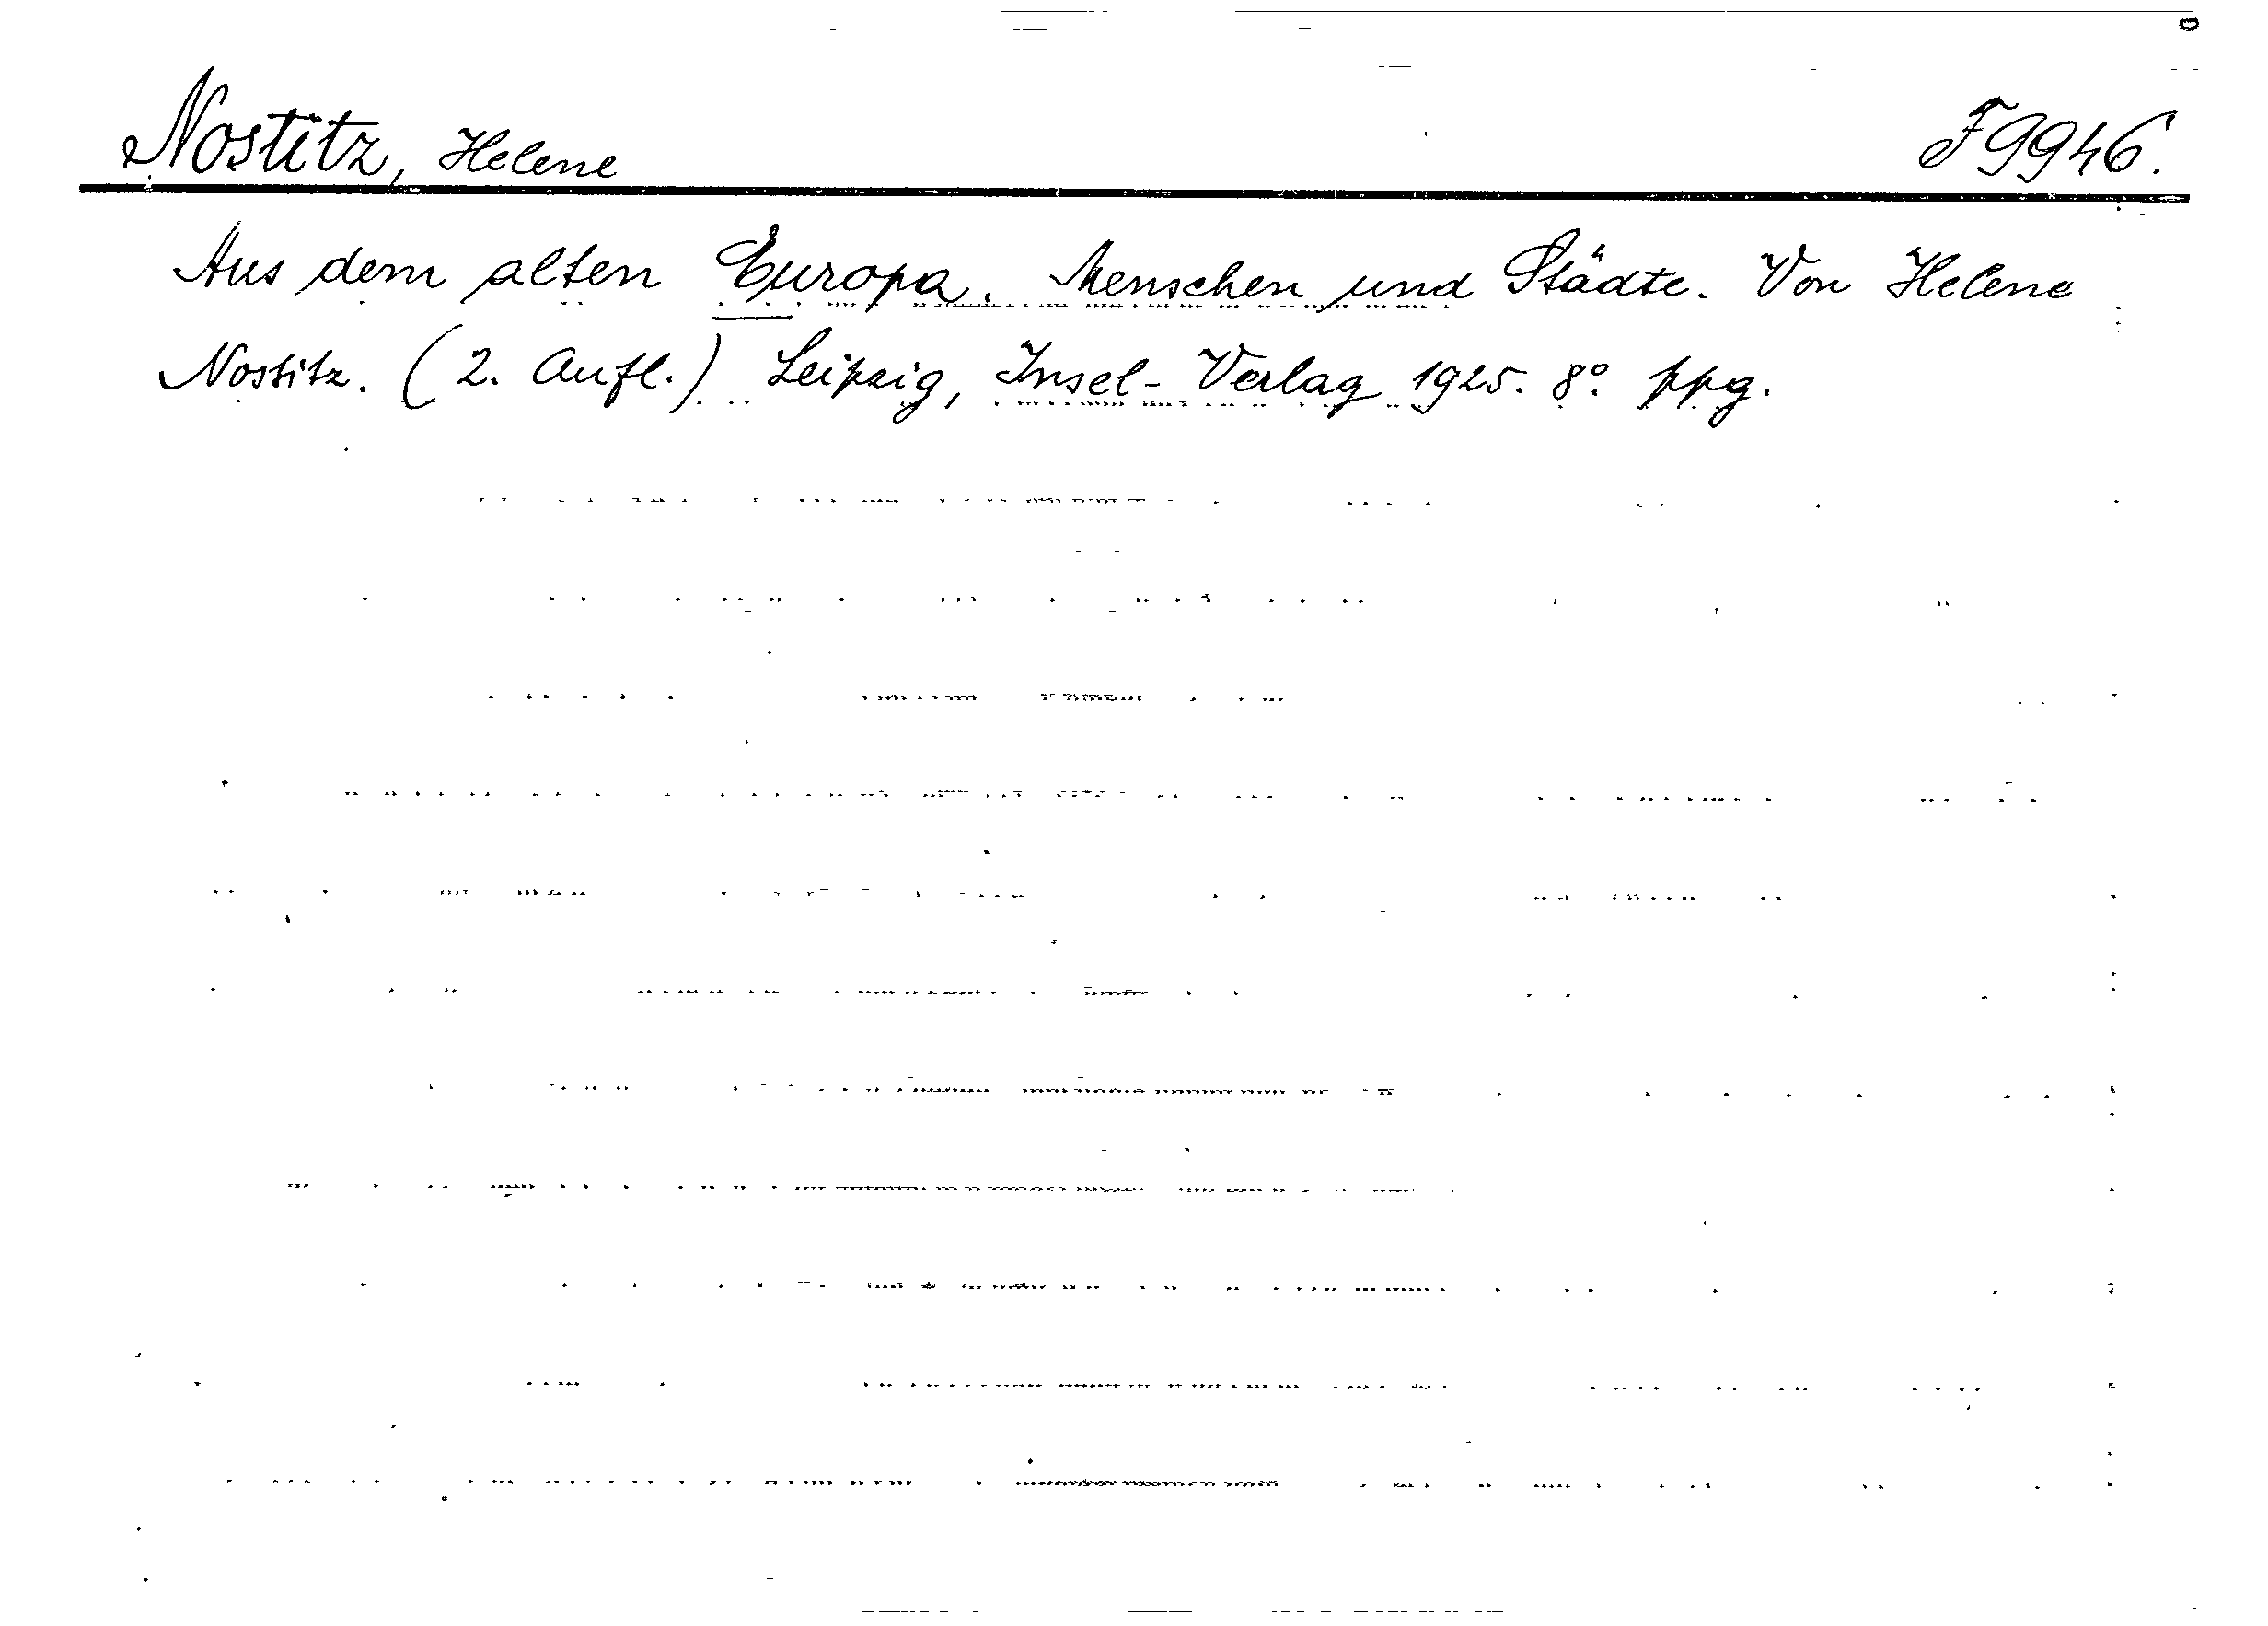 Nostitz, Helene F 9946.
Aus dem alten Europa. Menschen und Städte. Von Helene
Nostitz. (2. Aufl.) Leipzig, Insel-Verlag 1925. 8° ppg.